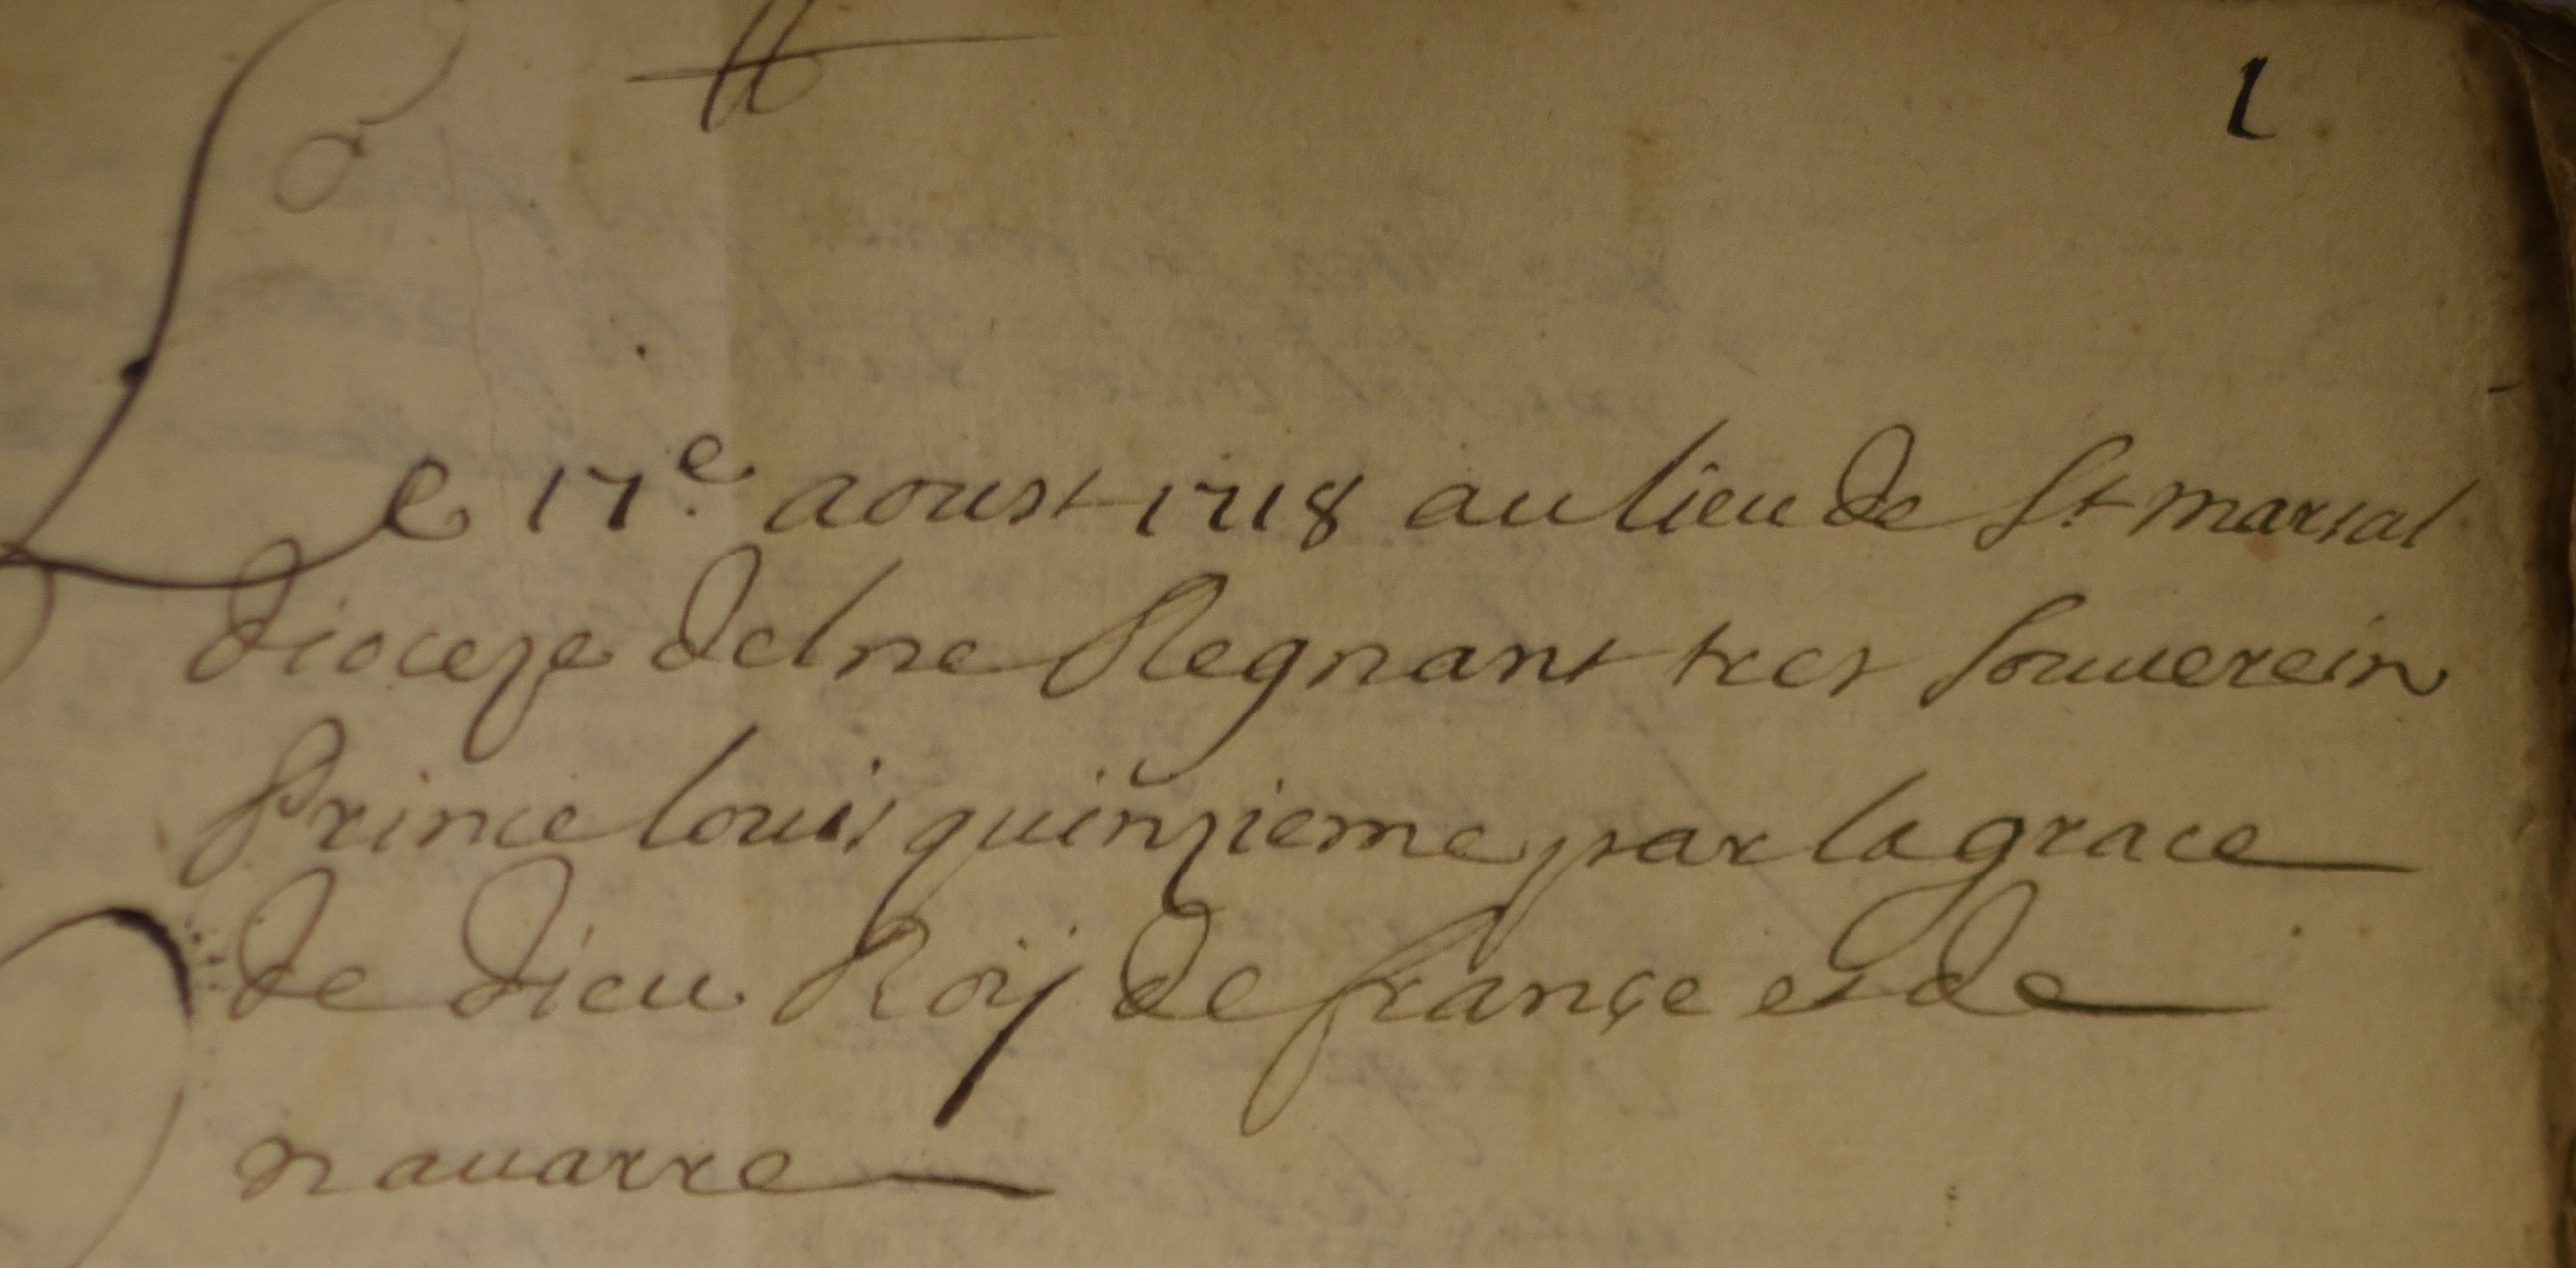 1
Le 17e aoust 1718 au lieu de St marsal
dioceze delne Regnant tres souuerein
Prince louis quinzieme par la grace
de dieu Roij de françe et de
nauarre